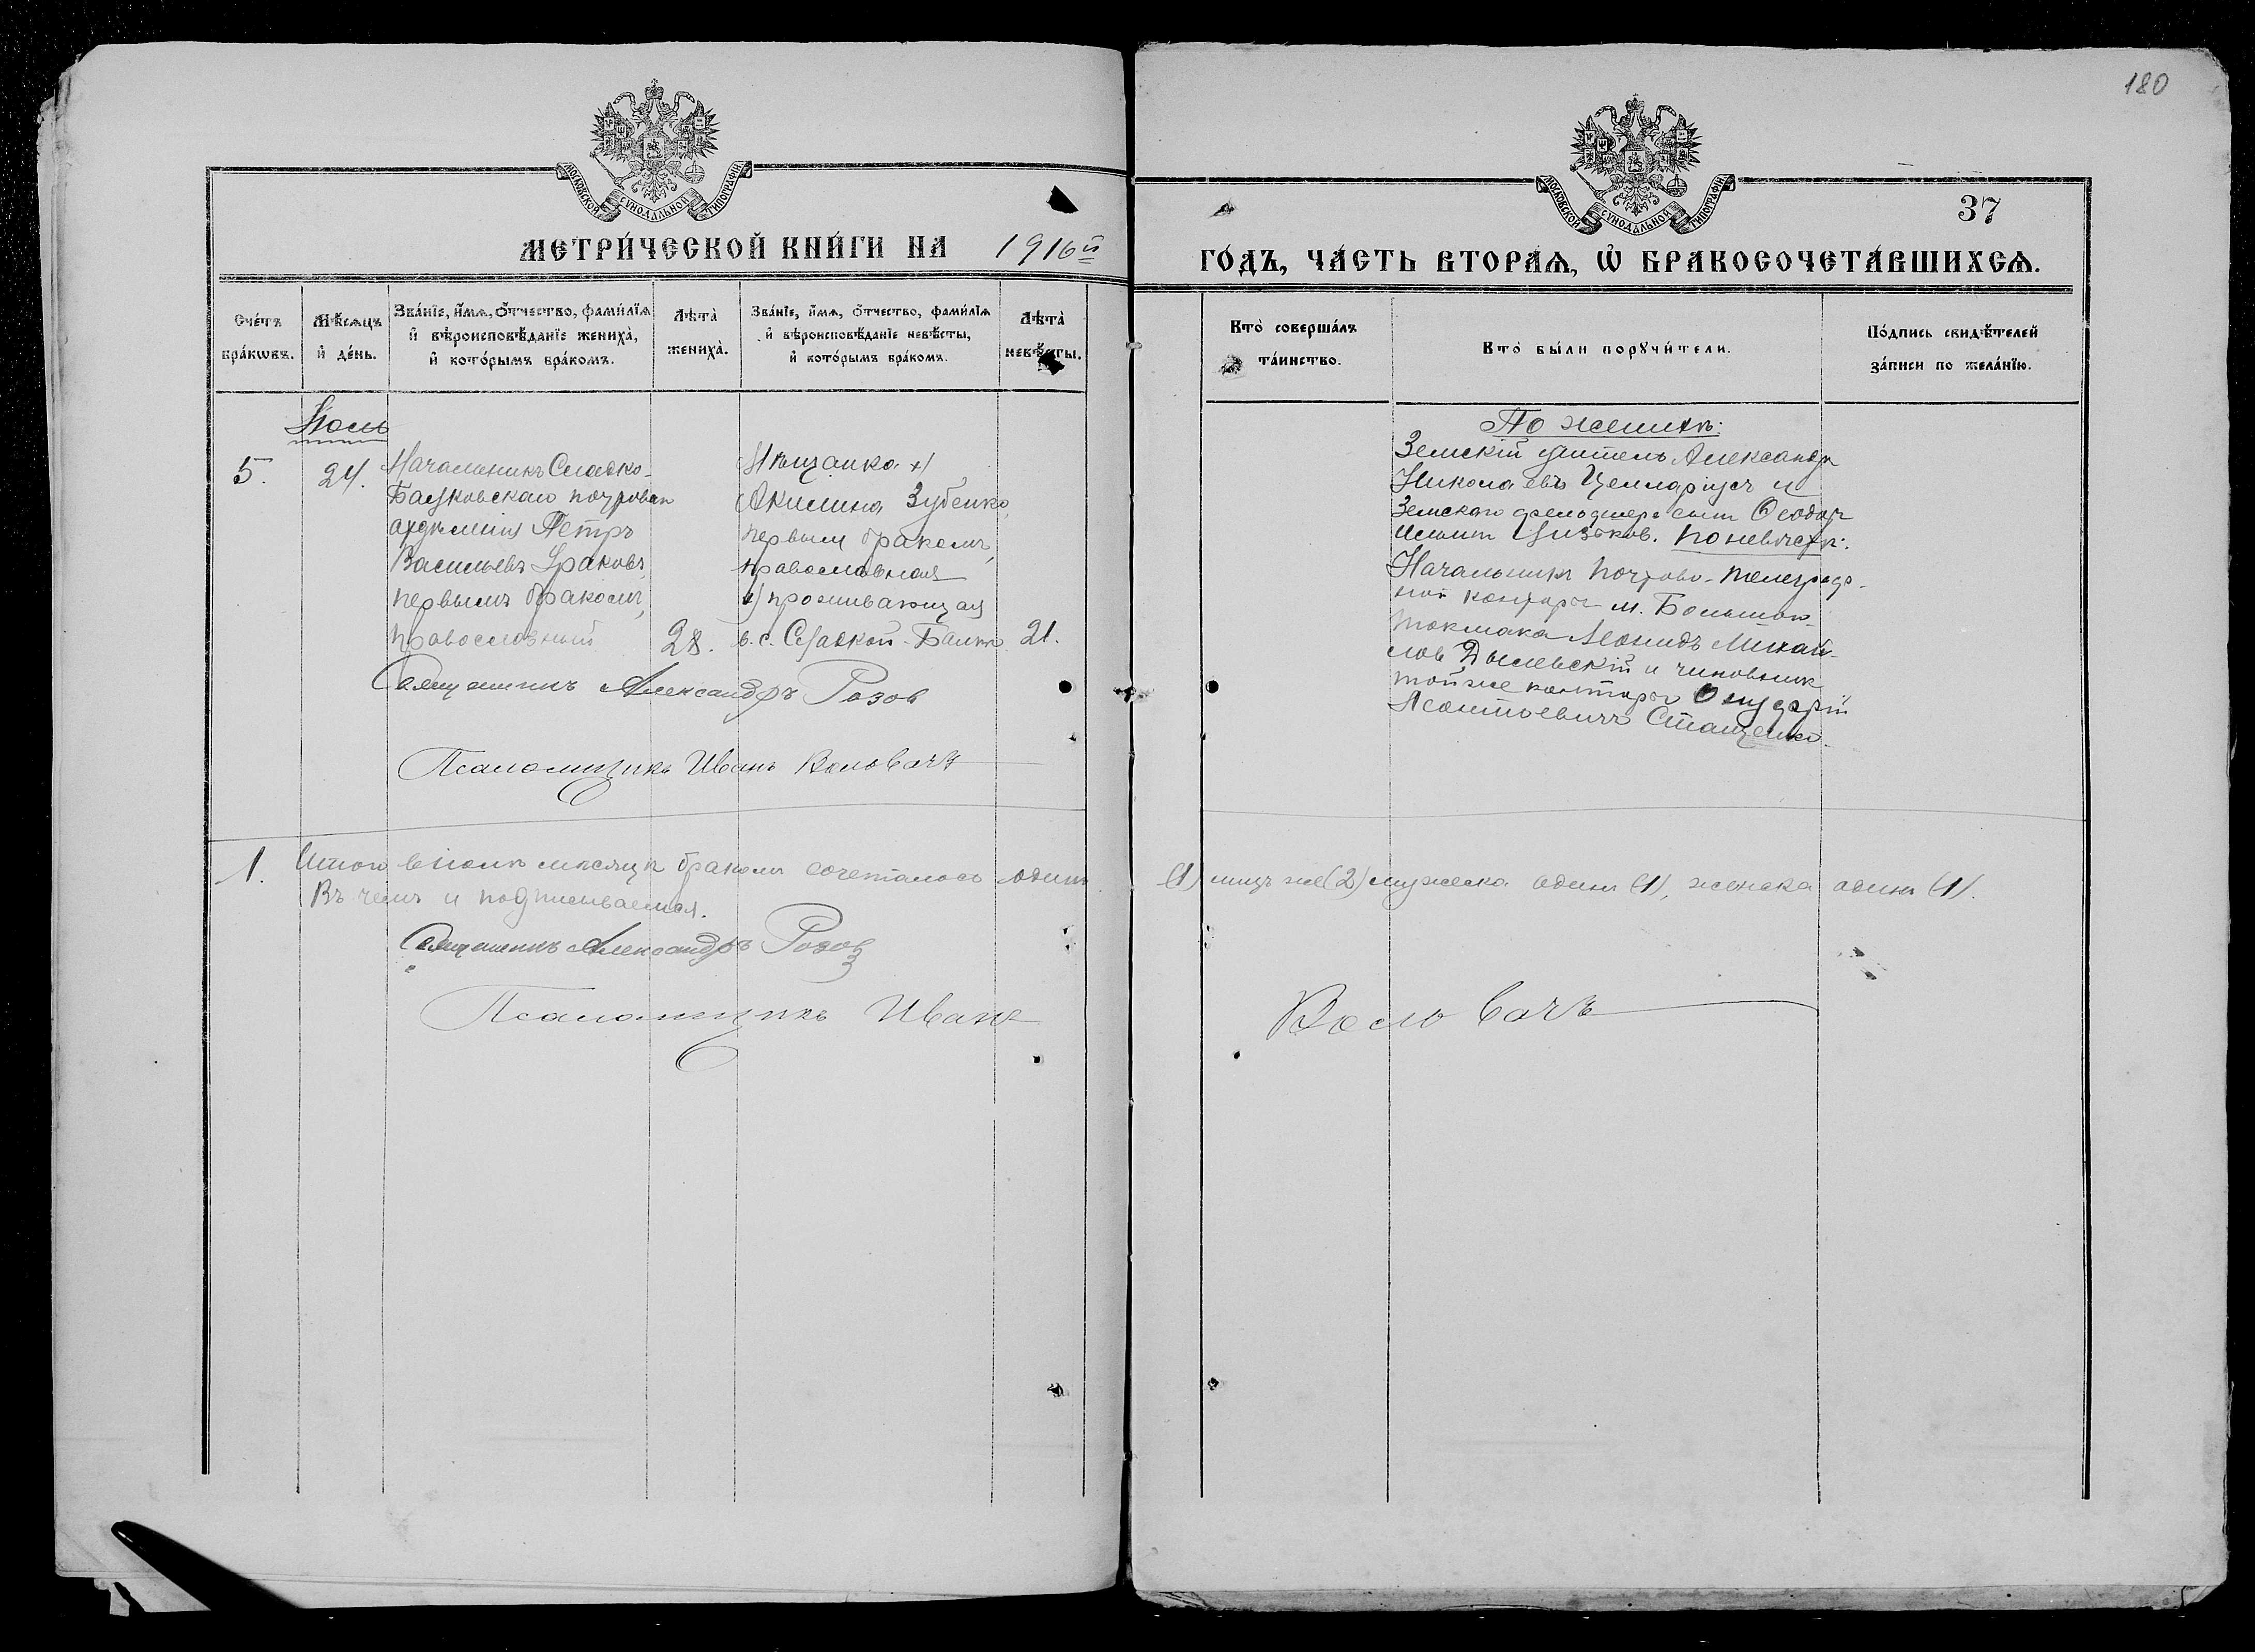 180
37
МОСКОВСКОЙ СѴНОДАЛЬНОЙ ТИПОГРАФІИ
МОСКОВСКОЙ СѴНОДАЛЬНОЙ ТИПОГРАФІИ
МЕТРИ́ЧЕСКОЙ КНИ́ГИ НА 1916й
ГО́ДЪ, ЧА́СТЬ ВТОРА́Ѧ, Ѡ БРАКОСОЧЕТА́ВШИХСѦ.
Сче́тъ бра́кѡвъ.
Мѣ́сѧцъ и҆ де́нь.
Зва́нїе, и҆́мѧ, ѻ҆́тчество, фами́лїѧ
и҆ вѣроисповѣ́данїе жениха̀,
и҆ кото́рымъ бра́комъ.
Лѣта̀ жениха̀.
Зва́нїе, и҆́мѧ, ѻ҆́тчество, фами́лїѧ
и҆ вѣроисповѣ́данїе невѣ́сты,
и҆ кото́рымъ бра́комъ.
Лѣта̀ невѣ́сты.
Кто̀ соверша́лъ
та́инство.
Кто̀ бы́ли порꙋчи́тели.
По́дпись свидѣ́телей
за́писи по жела́нїю.
Іюль
5.
24.
Начальникъ Сладко-
Балковскаго почтоваго
отдѣленія Петръ
Васильевъ Ураковъ,
первымъ бракомъ,
православный
28.
Мѣщанка х)
Акилина Зубенко,
первым бракомъ,
православная
х) проживающая
в. с. Сладкой-Балкѣ
21.
Священникъ Александръ Розов
Псаломщикъ Иванъ Воловачъ
По женихѣ:
Земскій учитель Александръ
Николаевъ Целларіусъ и
Земскаго фельдшера сын Ѳеодоръ
Цизьков. По невѣстѣ:
Начальникъ почтово-телеграф-
ной конторы м. Большого
Токмака Леонидъ Михай-
лов Дылевскій и чиновник
той же конторы
Леонтьевичъ Стащенко.
1. Итого в іюлѣ мѣсяцѣ браком сочеталось один
(1) лицъ же (2) мужеска один (1), женска один (1).
Въ чемъ и подписываемся.
Священникъ Александръ Розов
Псаломщикъ Иванъ Воловачъ